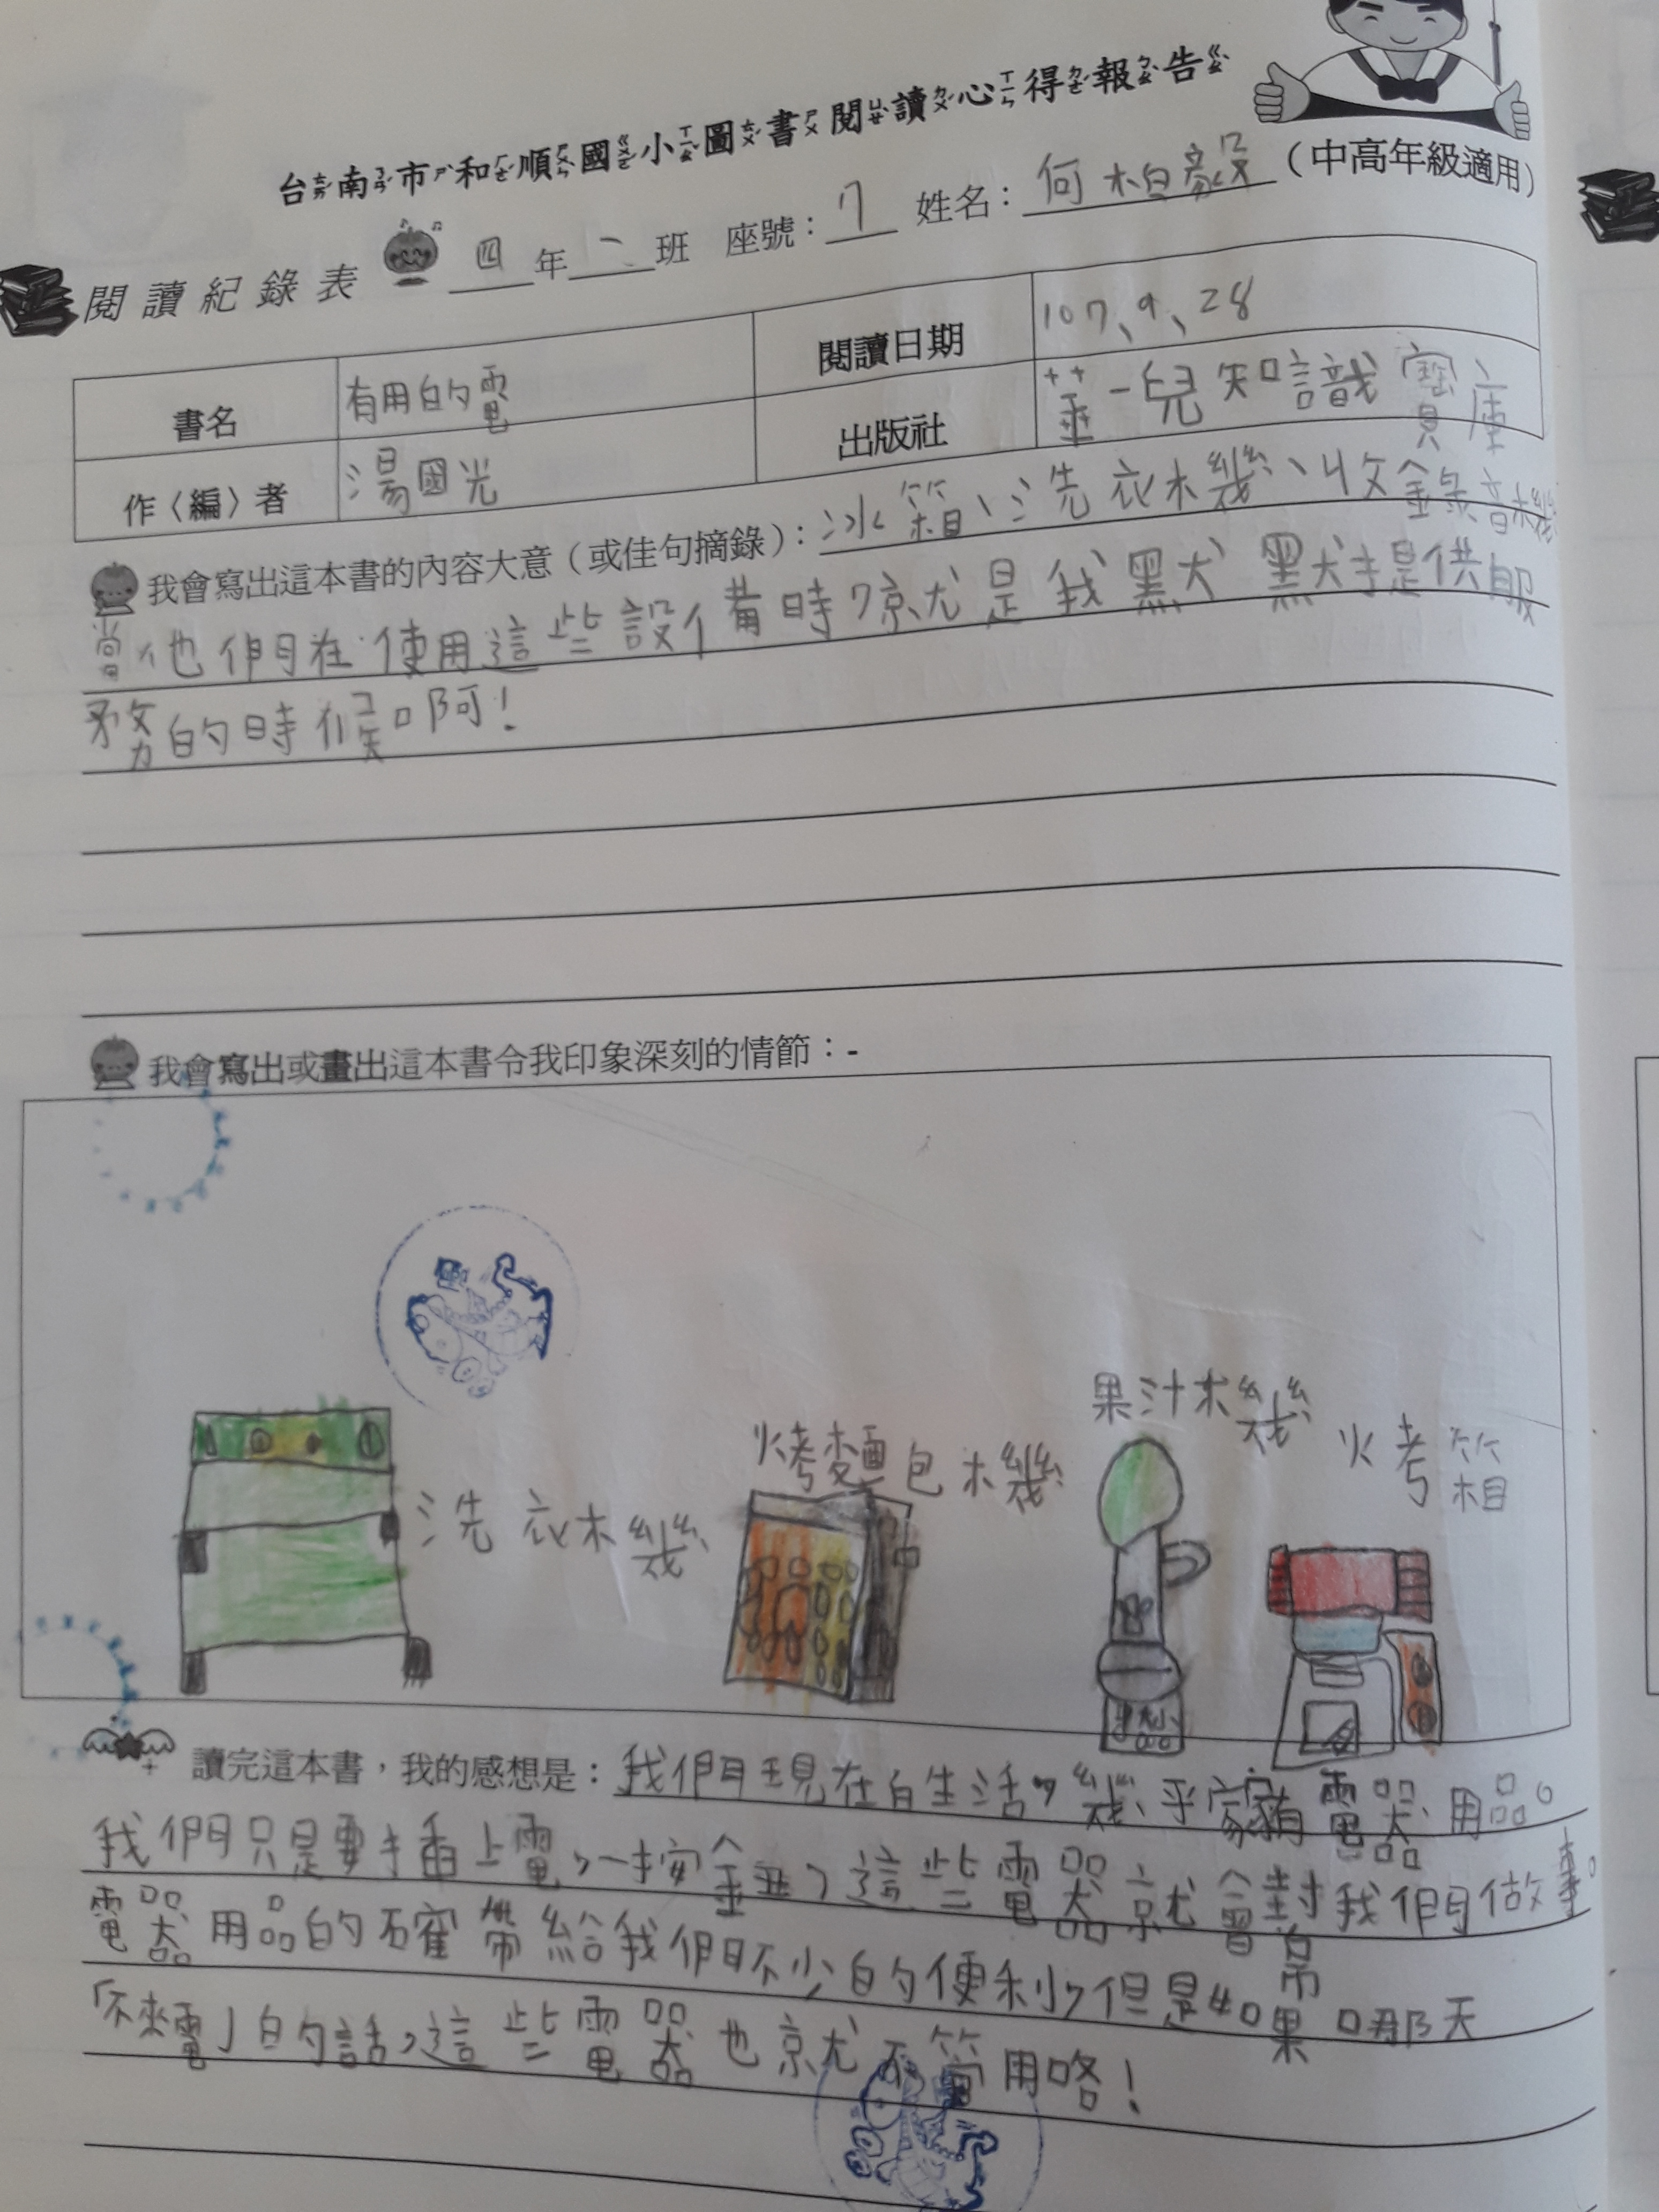 台南市和順國小圖書閱讀心得報告
閱讀紀錄表 四年二班 座號：7 姓名：何柏毅（中高年級適用）
書名 有用的電 閱讀日期 107、9、28
作〈編〉者 湯國光 出版社 華一兒知識寶庫
我會寫出這本書的內容大意（或佳句摘錄）：冰箱、洗衣機、收錄音機
當他們在使用這些設備時,就是我默默提供服
務的時候啊！
我會寫出或畫出這本書令我印象深刻的情節：-
果汁機
烤麵包機 火考箱
洗衣機
讀完這本書，我的感想是：我們現在白生活,幾乎家有電器用品。
我們只是要插上電,一按鈕,這些電器就會對我們做事。
電器用品的確帶給我們不少的便利,但是如果哪天
「不來電」的話,這些電器也就不管用咯！